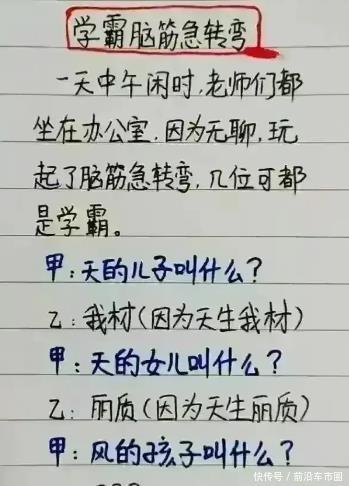 学霸脑筋急转弯
一天中午闲时,老师们都
坐在办公室,因为无聊,玩
起了脑筋急转弯,几位可都
是学霸。
甲:天的儿子叫什么?
乙:我材(因为天生我材)
甲:天的女儿叫什么?
乙:丽质(因为天生丽质)
甲:风的孩子叫什么?
快传号/前沿车市圈